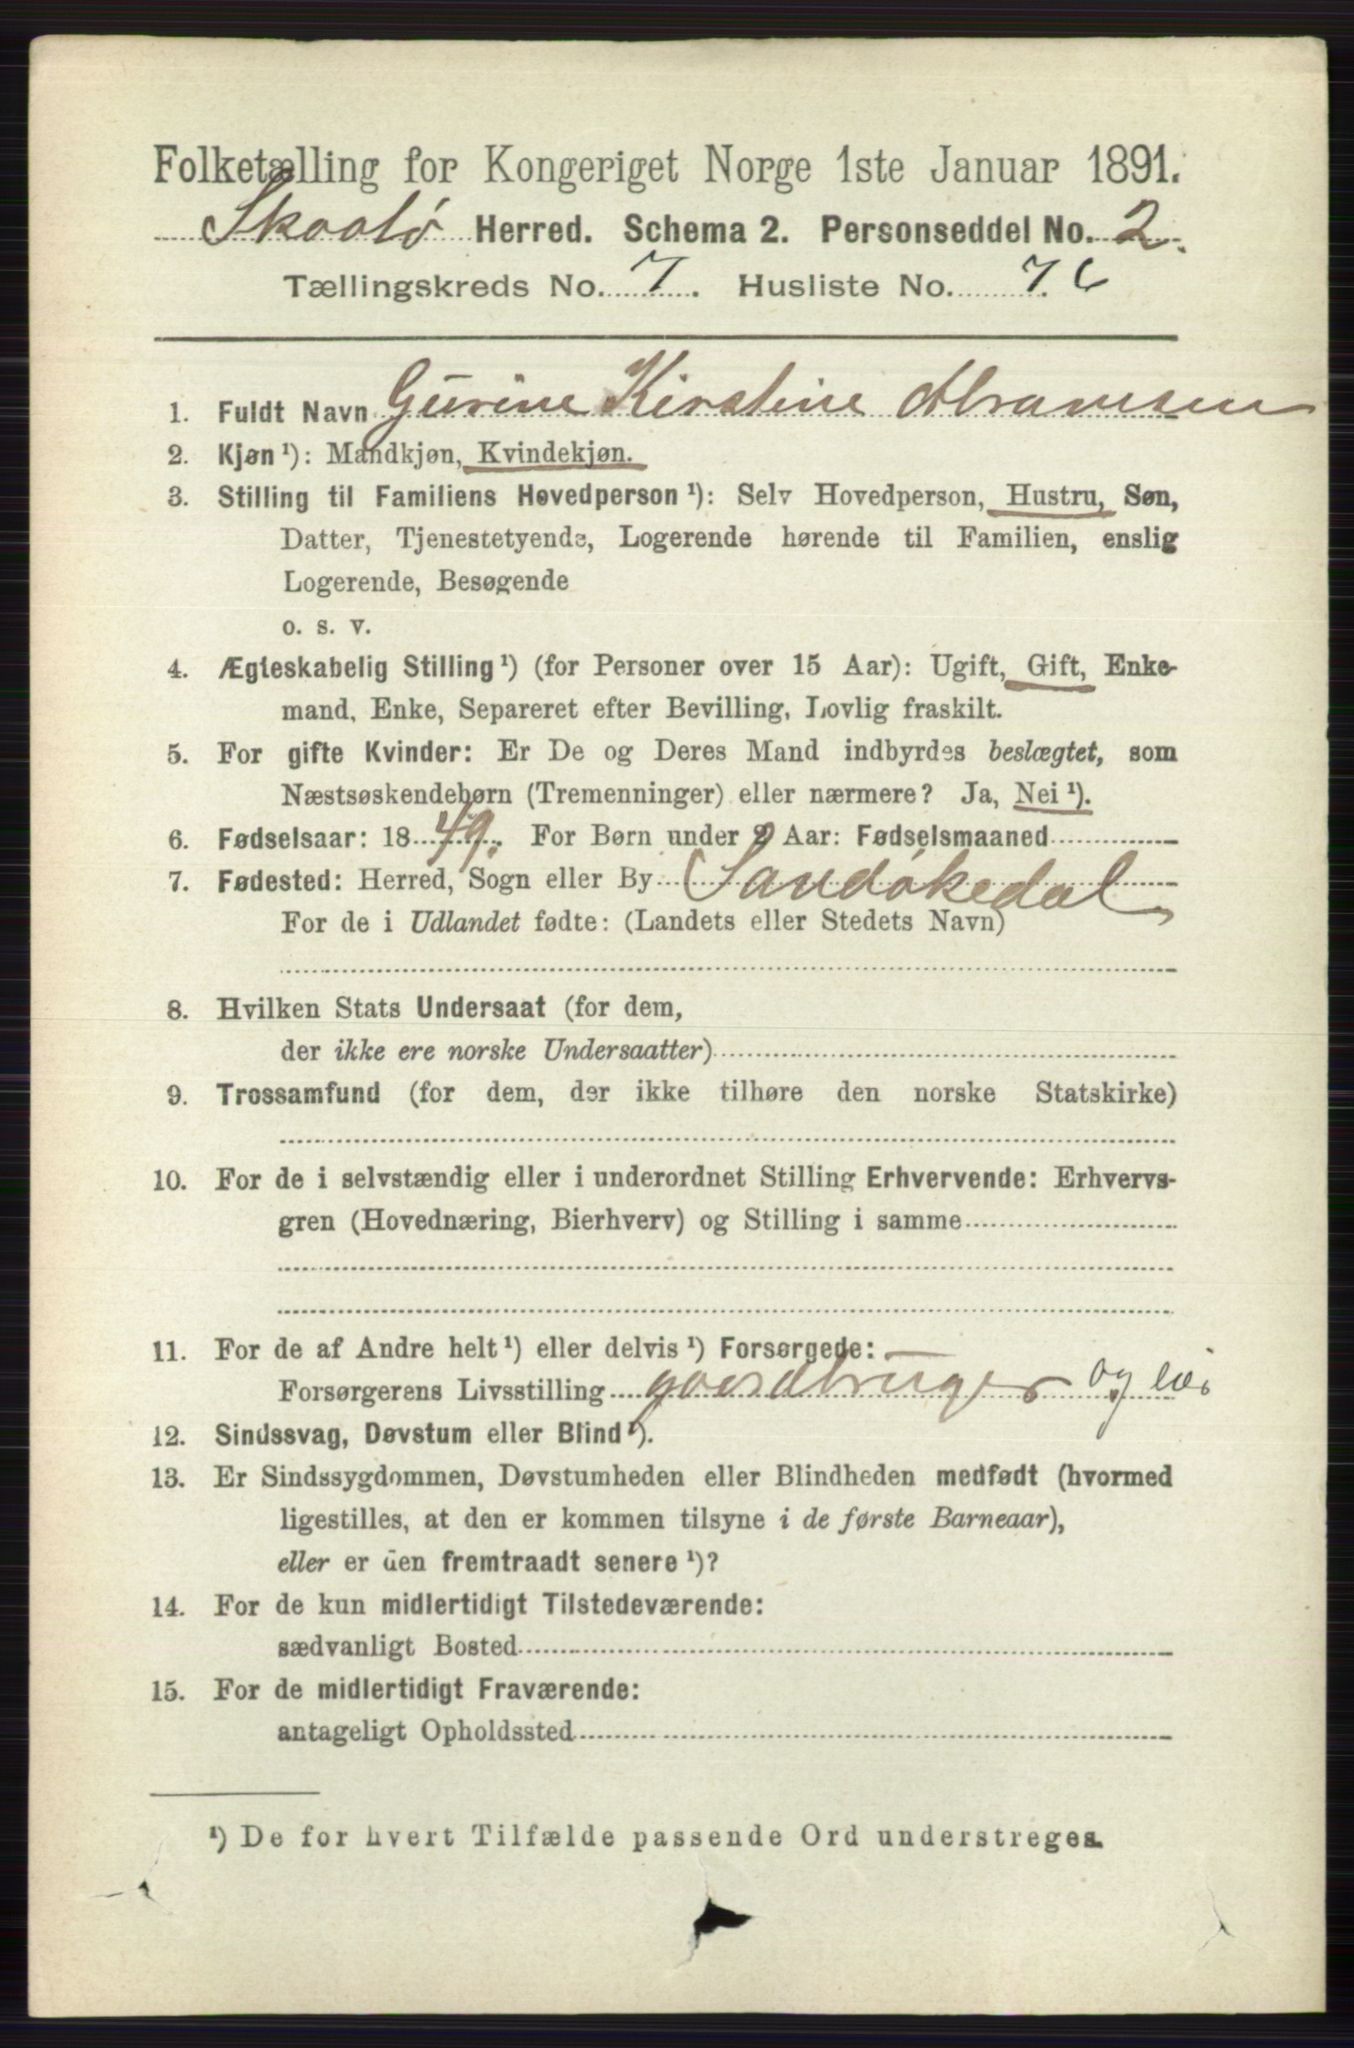 Folketælling for Kongeriget Norge 1ste Januar 1891.
Skaatø Herred. Schema 2. Personseddel No. 2.
Tællingskreds No. 7. Husliste No. 76
1. Fuldt Navn Gurine Kirstine Abramsen
2. Kjøn ¹): Mandkjøn, Kvindekjøn.
3. Stilling til Familiens Hovedperson ¹): Selv Hovedperson, Hustru, Søn,
Datter, Tjenestetyende, Logerende hørende til Familien, enslig
Logerende, Besøgende
o. s. v.
4. Ægteskabelig Stilling ¹) (for Personer over 15 Aar): Ugift, Gift, Enke-
mand, Enke, Separeret efter Bevilling, Lovlig fraskilt.
5. For gifte Kvinder: Er De og Deres Mand indbyrdes beslægtet, som
Næstsøskendebørn (Tremenninger) eller nærmere? Ja, Nei ¹).
6. Fødselsaar: 1849. For Børn under 2 Aar: Fødselsmaaned
7. Fødested: Herred, Sogn eller By Sandøkedal
For de i Udlandet fødte: (Landets eller Stedets Navn)
8. Hvilken Stats Undersaat (for dem,
der ikke ere norske Undersaatter)
9. Trossamfund (for dem, der ikke tilhøre den norske Statskirke)
10. For de i selvstændig eller i underordnet Stilling Erhvervende: Erhvervs-
gren (Hovednæring, Bierhverv) og Stilling i samme
11. For de af Andre helt ¹) eller delvis ¹) Forsørgede:
Forsørgerens Livsstilling gaardbruger og
12. Sindssvag, Døvstum eller Blind ¹).
13. Er Sindssygdommen, Døvstumheden eller Blindheden medfødt (hvormed
ligestilles, at den er kommen tilsyne i de første Barneaar),
eller er den fremtraadt senere ¹)?
14. For de kun midlertidigt Tilstedeværende:
sædvanligt Bosted
15. For de midlertidigt Fraværende:
antageligt Opholdssted
¹) De for hvert Tilfælde passende Ord understreges.